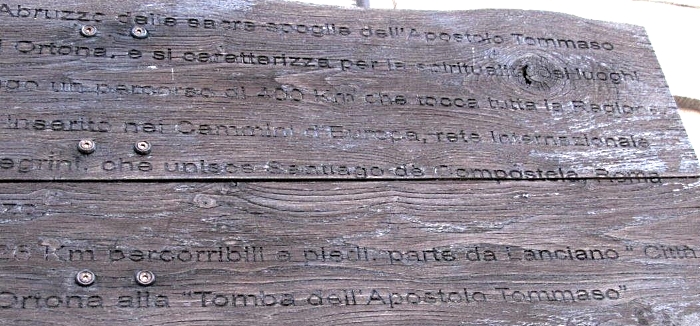 Abruzzo delle sacre spoglie dell'Apostolo Tommaso
Ortona, e si caratterizza per la spiritualità dei luoghi
un percorso di 400 km che tocca tutta la Regione
inserito nei Cammini d'Europa, rete internazionale
che unisce Santiago de Compostela, Roma
Km percorribili a piedi, parte da Lanciano "Città
Ortona alla "Tomba dell'Apostolo Tommaso"